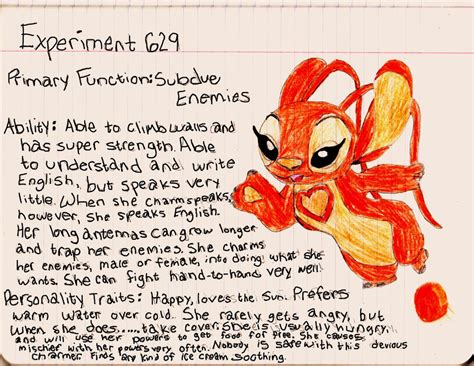 Experiment 629
Primary Function: Subdue
Enemies
Ability: Able to climb walls and
has super strength. Able
to understand and write
English, but speaks very
little. When she charmspeaks,
however, she speaks English.
Her long antennas can grow longer
and trap her enemies. She charms
her enemies, male or female, into doing what she
wants. She can fight hand-to-hand very well.
Personality Traits: Happy, loves the Sun. Prefers
warm water over cold. She rarely gets angry, but
when she does......take cover. She is usually hungry
and will use her powers to get food for free. She causes
mischief with her powers very often. Nobody is safe with this devious
charmer. Finds any kind of ice cream soothing.